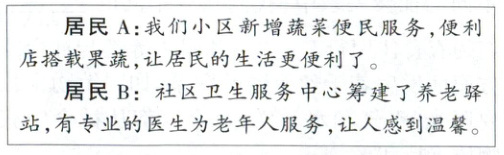 居民 A:我们小区新增蔬菜便民服务,便利
店搭载果蔬,让居民的生活更便利了。
居民 B: 社区卫生服务中心筹建了养老驿
站,有专业的医生为老年人服务,让人感到温馨。